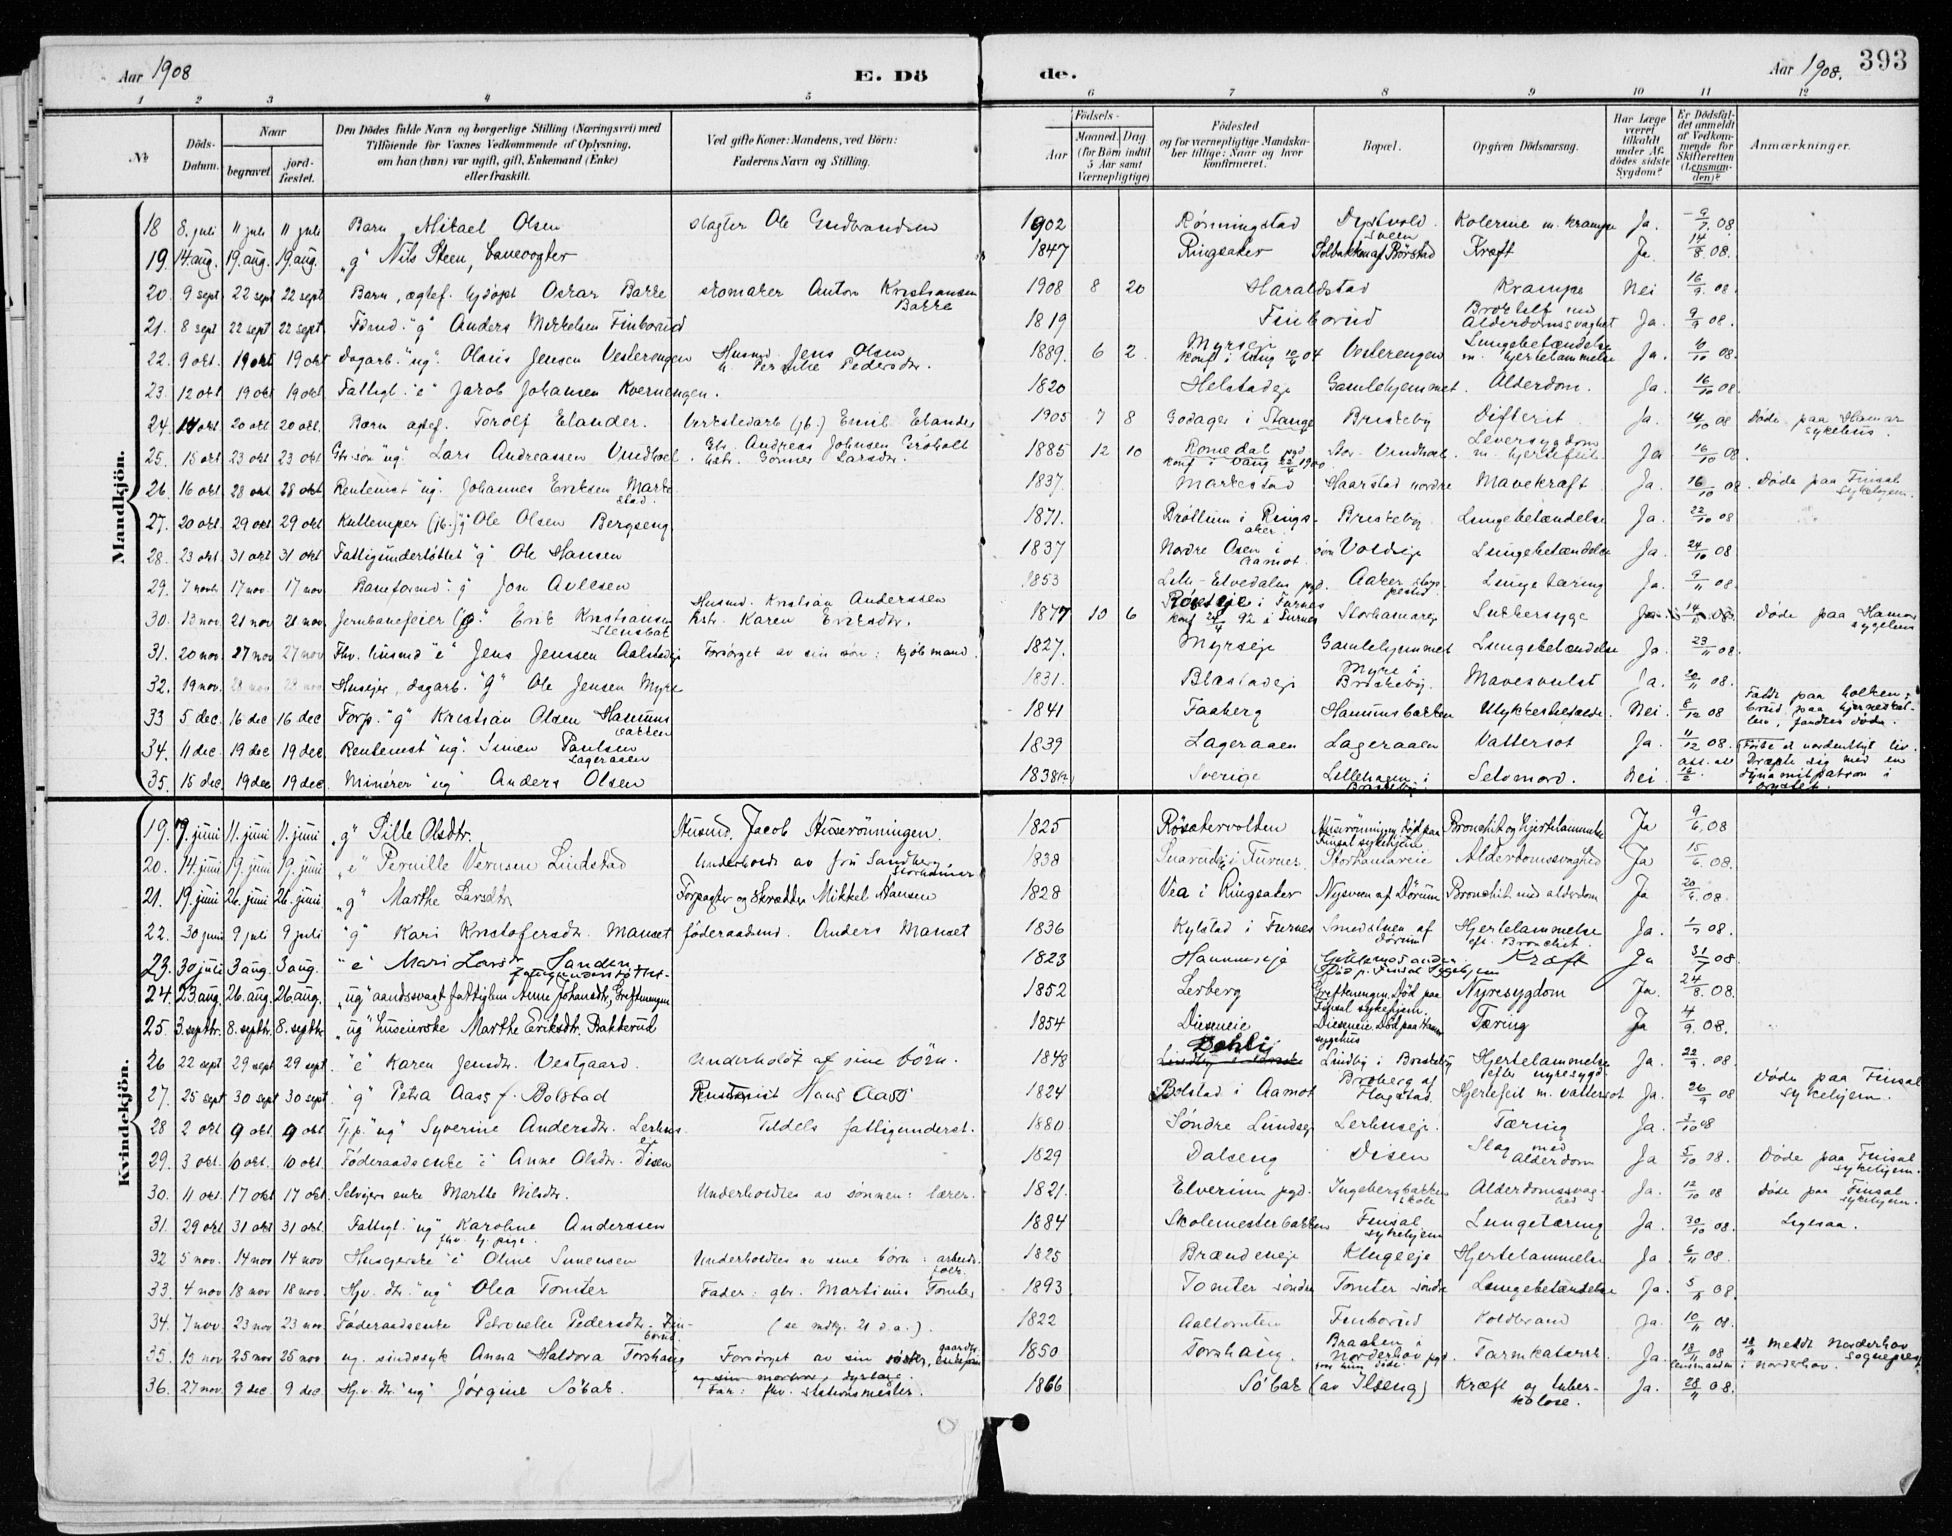 Aar 1908
E. Dö
de.
Aar 1908.
393
1 2 3 4 5 6 7 8 9 10 11 12
No
Döds-Datum.
Naar
begravet
jord-fæstet.
Den Dödes fulde Navn og borgerlige Stilling (Næringsvei) med
Tilföiende for Voxnes Vedkommende af Oplysning,
om han (hun) var ugift, gift, Enkemand (Enke)
eller fraskilt.
Ved gifte Koner: Mandens, ved Börn:
Faderens Navn og Stilling.
Födsels-
Aar
Maaned Dag
(for Börn indtil
5 Aar samt
Værnepligtige)
Födested
og for værnepligtige Mandska-
ber tillige: Naar og hvor
konfirmeret.
Bopæl.
Opgiven Dödsaarsag.
Har Læge
været
tilkaldt
under Af-
dödes sidste
Sygdom?
Er Dödsfal-
det anmeldt
af Vedkom-
mende for
Skifteretten
(Lensman-
den)?
Anmærkninger.
Mandkjön.
18 8. juli 11 juli 11 juli Barn Mikael Olsen slagter Ole Gudbrandsen 1902 Rönningstad Dystvold Kolerine m. krampe Ja. 9/7 08.
19. 14. aug. 19. aug. 19. aug. "g" Nils Steen, banevogter 1847 Ringsaker Kræft Ja 14/8 08.
20. 9 sept 22 sept 22 sept Barn, ægtef. Oskar Bakke skomaker Anton Kristiansen Bakke 1908 8 20 Haraldstad Krampe Nei 16/9 08.
21. 8 sept 22 sept 22 sept. "g" Anders Mikkelsen Finborud 1819 Finborud Alderdomssvaghet Ja. 9/9 08.
22. 9 okt. 19 okt 19 okt dagarb. "ug". Olavis Jensen Vesterengen Husmd. Jens Olsen h. Pernille Pedersdr. 1889. 6 2. Myrseje konf. i Vang 04 Vesterengen Lungebetændelse m. hjertelammelse Ja. /10 08.
23. 12 okt 19 okt 19 okt. Fattigl. "e" Jakob Johansen Kvernengen. 1820 Helstadeje Gamlehjemmet. Alderdom. Ja. 16/10 08.
24. 14 okt 20 okt 20 okt. Barn Torolf Elander. Verkstedarb (jb.) Emil Elander 1905 7 8 Godager i Stange Briskeby Difterit Ja. 14/10 08 Döde paa Hamar sykehus.
25. 15 okt 23 okt 23 okt Gbr. sön "ug" Lars Andreassen Vindhoel. Gbr. Andreas Johnsen hstr. Gönner Larsdr. 1885 12 10 Romedal konf. i Vang 1900 Vindhoel Leversygdom m. hjertefeil Ja 16/10 08.
26. 16 okt 28 okt 28 okt Rentenist "ug" Johannes Eriksen Markestad 1837. Markestad Haarstad nordre Mavekræft. Ja. 16/10 08. Döde paa Finsal Sykehjem.
27. 20 okt 29 okt 29 okt. Kultemper (jb.) "g" Ole Olsen Bergseng. 1871. Bröttum i Ringsaker Briskeby Lungebetændelse Ja 22/10 08
28. 23 okt 31 okt 31 okt Fattigunderstöttet "g" Ole Hansen 1837 Nordre Osen i Aamot. Voldseje Lungebetændelse Ja. 24/10 08
29. 7 novb. 17 nov. 17 nov Baneformd. "g" Jon Avlesen 1853 Lille-Elvedalen pgd. Aaker Lungetæring Ja. 9/11 08.
30. 13 nov 21 nov 21 nov. Jernbanefeier "g" Erik Kristiansen Stensbak Husmd. Kristian Anderssen hstr. Karen Eriksdr. 1877 10 6 i Furnes konf. 92 i Furnes Storhamareje Sukkersyge Ja. 14/11 08. Döde paa Hamar sygehus
31. 20 nov. 27 nov 27 nov Fhv. husmd "e" Jens Jenssen Aalstadeje Forsörget av sin sön: kjöbmand. 1827. Myrseje Gamlehjemmet Lungebetændelse Ja. 23/11 08.
32. 19 nov. 28 nov 28 nov. Husejer, dagarb. "g" Ole Jensen Myre 1831. Blæstadeje Myre i Briskeby. Mavesvulst Ja. 20/11 08.
33 5 dec. 16 dec 16 dec Forp. "g" Kristian Olsen Hanumsbakken 1841 Faaberg Hanumsbakken Ulykkeshendelse. Nei. 8/12 08 Faldt paa holken; brud paa hjerneskallen, fandtes döde.
34. 11 dec. 19 dec 19 dec. Rentenist "ug". Simen Paulsen Lageraaen 1839 Lageraaen Lageraaen Vattersot Ja. 11/12 08.
35. 15 dec 19 dec 19 dec. Minérer "ug" Anders Olsen 1838(?) Sverige Lillehagen i Briskeby Selvmord. Nei Dræpte sig med en dynamitpatron i brystet.
Kvindekjön.
19. 7. juni 11. juni 11. juni "g" Pille Olsdtr. Husmd. Jacob Huserönningen. 1825 Rösætervolden Huserönningen. Död paa Finsal sykehjem. Bronchit og hjertelammelse Ja 9/6 08
20. 14. juni 19. juni 19. juni "e" Pernille Vernsen Lindstad Underholdt av fru Sandberg, Storhamar 1838 i Furnes Storhamareie Alderdomssvaghed Ja 15/6 08.
21. 19. juni 26. juni 26. juni "g" Marthe Larsdtr Forpagter og Skrædder Mikkel Hansen 1828 Vea i Ringsaker Nysveen af Dörum Bronchit med alderdom Ja 20/6 08.
22. 30 juni 9 juli 9 juli "g" Kari Kristofersdr. Manset föderaadsmd. Anders Manset 1836 Kylstad i Furnes af Dörum Hjertelammelse eft. Bronchit. Ja. 1/7 08.
23. 30 juli 3 aug. 3 aug. "e" Mari Larsdr Sanden fattigunderstöttet 1823 Hanumseje Död p. Finsal Sygehjem Kræft Ja 31/7 08
24. 23 aug. 26. aug. 26. aug. "ug" aandssvagt fattiglem Anne Johansdtr, Greftenengen 1852 Lerberg Greftenengen. Död paa Finsal sykehjem. Nyresygdom Ja. 24/8 08.
25. 3. septbr. 8. septbr. 8. septbr "ug" huseierske Marthe Eriksdtr. Brakkerud 1854 Diseneie Diseneie. Död paa Hamar sygehus Tæring Ja 4/9 08.
26 22 sept 29 sept 29 sept. "e" Karen Jensdtr. Vestgaard. Underholdt af sine börn. 1848 Dehli Lindby i Briskeby Hjertelammelse efter nyresygd. Ja. 22/9 08.
27. 25 sept 30 sept 30 sept. "g" Petra Aass f. Bolstad Rentenist Hans Aass 1824 Bolstad i Aamot Broberg af Flagstad. Hjertefeil m. vattersot Ja. 26/9 08 Döde paa Finsal sykehjem.
28 2 okt 9 okt 9 okt Tjp. "ug" Syverine Andersdr. Lerhuseje Tildels fattigunderst. 1880 Söndre Lundseje Lerhuseje. Tæring Ja. 3/10 08
29. 3 okt. 10 okt. 10 okt. Föderaadsenke Anne Olsdtr. Disen 1829 Dalseng Disen Slag med Alderdom Ja 5/10 08. Döde paa Finsal sykehjem.
30. 11 okt. 17 okt 17 okt. Selvejers enke Marthe Nilsdtr. Underholdtes av sönnen: lærer. 1821. Elverum pgd. Ingebergbakken skole Alderdomssvaghed Ja. 12/10 08 Döde paa Finsal sykehjem.
31. 29 okt 31 okt 31 okt. Fattigl. "ug" Karoline Anderssen fhv. tj. pige. 1884 Skolemesterbakken Finsal sykehjem Lungetæring Ja. 30/10 08. Ligesaa.
32 5 nov. 14 nov 14 nov "e" Oline Simensen Underholdtes av sine börn: arbeidsfolk. 1825 Brændeneje Klugseje Hjertelammelse Ja 6/11 08.
33. 4 nov 18 nov 18 nov. Hjv. dtr. "ug" Olea Tomter Fader: gbr. Martinus Tomter 1893 Tomter söndre Tomter söndre Lungebetændelse Ja. 5/11 08.
34. 7 nov. 23 nov 23 nov. Föderaadsenke Petronelle Pedersdtr. Finborud. (se mdkj. 21 d.a.). 1822 Finborud Koldbrand Ja. 10/11 08.
35. 13 nov 25 nov 25 nov. ug. sindssyk Anna Haldora Torshaug Forsörget av sin söster, gaardbr. enke 1850 Torshaug. Braaten i Norderhov pgd. Tarmkatarrh. Ja. 18/11 08 meldt Norderhov sogneprest
36. 27 nov. 9 dec. 9 dec. Hjv. dtr. "ug" Jörgine Söbak Far: fhv. stationsmester. 1866 Söbak (av Ilseng) Kræft og tuberkulose. Ja. 28/11 08.